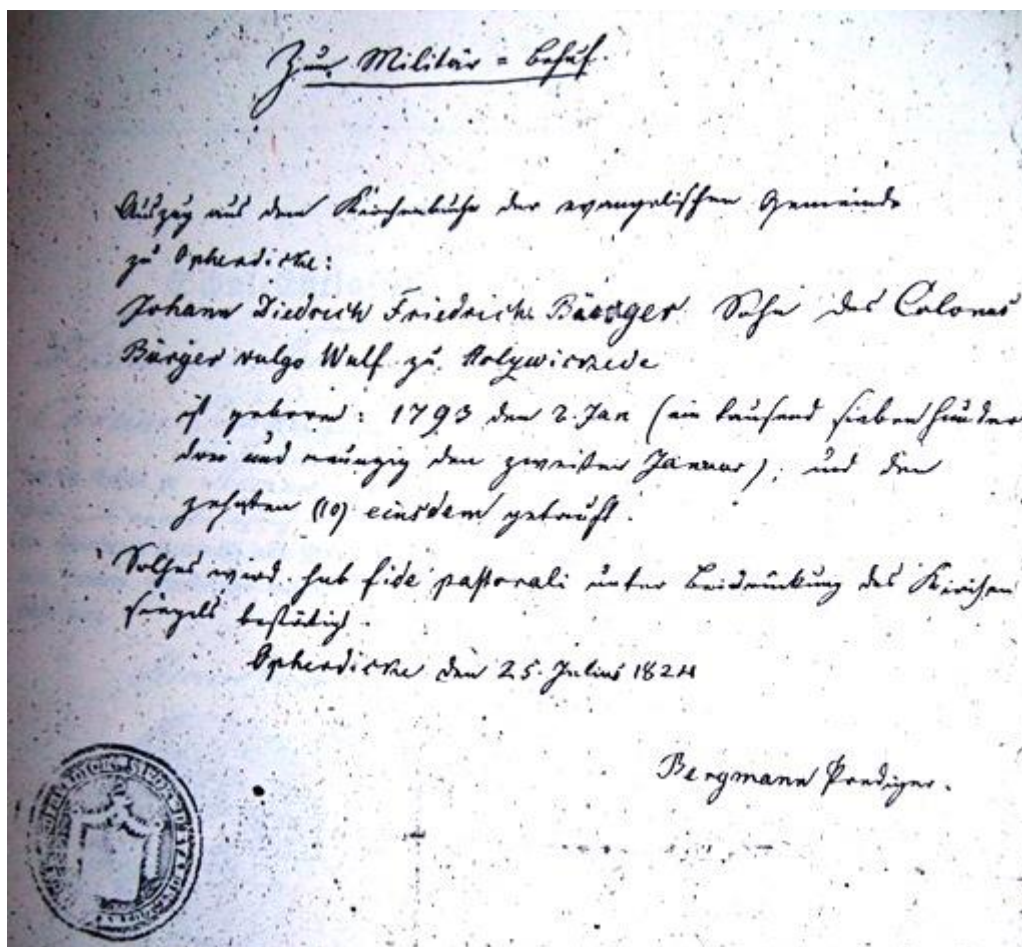 Zum Militär = Behuf.
Auszug aus dem Kirchenbuche der evangelischen Gemeinde
zu Opherdicke:
Johann Diedrich Friedrich Bürger Sohn des Colonus
Bürger vulgo Wulf zu Holzwickede
ist geboren: 1793 den 2. Jan (ein tausend sieben hundert
drei und neunzig den zweiten Januar), und den
zehnten (10) eiusdem getauft.
Solches wird sub fide pastorali unter Beidrückung des Kirchen
siegels bestätigt.
Opherdicke den 25. Julius 1824
Bergmann Prediger.